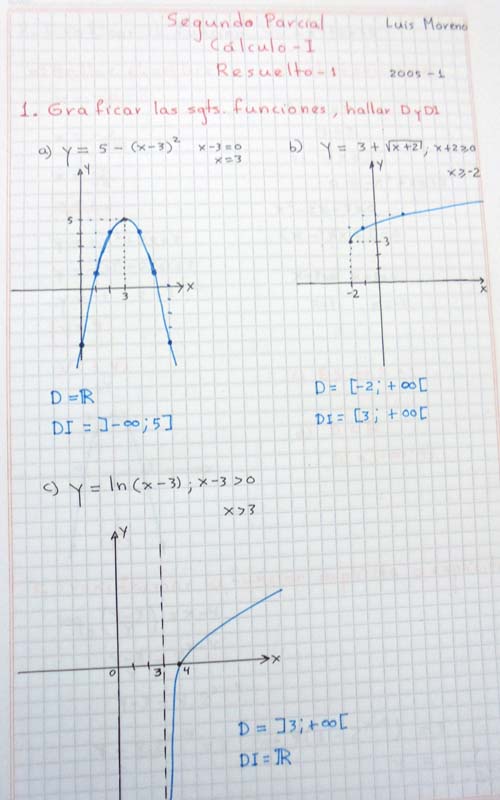 Segundo Parcial
Luis Moreno
Cálculo-I
Resuelto-1
2005-1
1. Graficar las sgts. funciones, hallar D y DI
a) y = 5 - (x-3)² x-3=0
x=3
b) y = 3 + √x+2, x+2≥0
x≥-2
Y
5
3
X
Y
3
-2
X
D = ℝ
DI = ]-∞;5]
D = [-2; +∞[
DI = [3; +∞[
c) y = ln(x-3); x-3>0
x>3
Y
0
3
4
X
D = ]3;+∞[
DI = ℝ